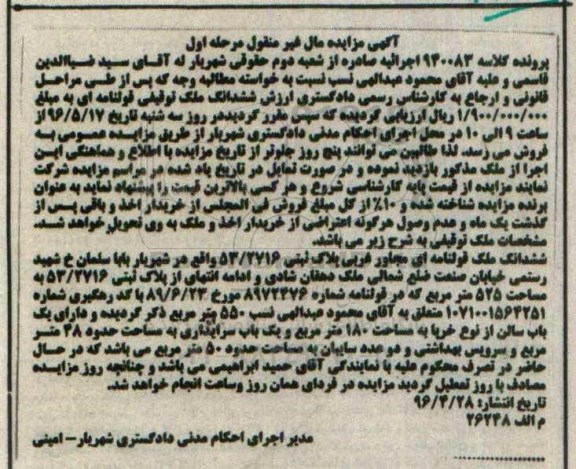 آگهی مزایده مال غیر منقول مرحله اول
پرونده کلاسه ۹۴۰۰۸۳ اجرائیه صادره از شعبه دوم حقوقی شهریار له آقای سید ضیاالدین
قاسمی و علیه آقای محمود عبدالهی نسب نسبت به خواسته مطالبه وجه که پس از طی مراحل
قانونی و ارجاع به کارشناس رسمی دادگستری ارزش ششدانگ ملک توقیفی قولنامه ای به مبلغ
۱/۹۰۰/۰۰۰/۰۰۰ ریال ارزیابی گردیده که سپس مقرر گردید در روز سه شنبه تاریخ ۹۶/۵/۱۷ از
ساعت ۹ الی ۱۰ در محل اجرای احکام مدنی دادگستری شهریار از طریق مزایده عمومی به
فروش می رسد. لذا طالبین می توانند پنج روز جلوتر از تاریخ مزایده با اطلاع و هماهنگی این
اجرا از ملک مذکور بازدید نموده و در صورت تمایل در تاریخ یاد شده در مراسم مزایده شرکت
نمایند مزایده از قیمت پایه کارشناسی شروع و هر کسی بالاترین قیمت را پیشنهاد نماید به عنوان
برنده مزایده شناخته شده و ۱۰٪ از کل مبلغ فروش فی المجلس از خریدار اخذ و باقی پس از
گذشت یک ماه و عدم وصول هرگونه اعتراضی از خریدار اخذ و ملک به وی تحویل خواهد شد.
مشخصات ملک توقیفی به شرح زیر می باشد.
ششدانگ ملک قولنامه ای مجاور غربی پلاک ثبتی ۵۳/۲۷۱۶ واقع در شهریار بابا سلمان خ شهید
رستمی خیابان صنعت ضلع شمالی ملک دهقان شادی و ادامه انتهای از پلاک ثبتی ۵۳/۲۷۱۶ به
مساحت ۵۲۵ متر مربع که در قولنامه شماره ۸۹۷۲۴۷۶ مورخ ۸۹/۶/۲۳ با کد رهگیری شماره
۱۰۷۱۰۰۱۵۶۴۲۵۱ متعلق به آقای محمود عبدالهی نسب ۵۵۰ متر مربع ذکر گردیده و دارای یک
باب سالن از نوع خرپا به مساحت ۱۸۰ متر مربع و یک باب سرایداری به مساحت حدود ۴۸ متر
مربع و سرویس بهداشتی و دو عدد سایبان به مساحت حدود ۵۰ متر مربع می باشد که در حال
حاضر در تصرف محکوم علیه با نمایندگی آقای حمید ابراهیمی می باشد و چنانچه روز مزایده
مصادف با روز تعطیل گردید مزایده در فردای همان روز وساعت انجام خواهد شد.
تاریخ انتشار: ۹۶/۴/۲۸
م الف ۲۶۲۴۸
مدیر اجرای احکام مدنی دادگستری شهریار- امینی